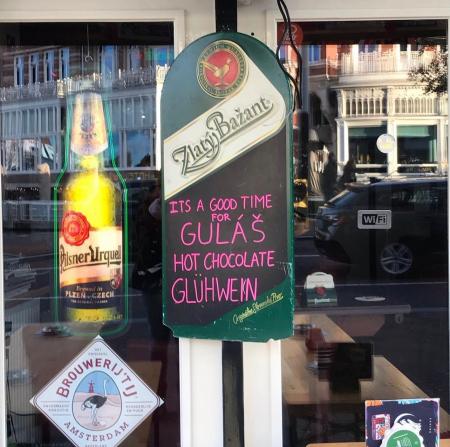 Zlatý Bažant
ITS A GOOD TIME
FOR
GULÁŠ
HOT CHOCOLATE
GLÜHWEIN
Originálne Slovenské Pivo
Pilsner Urquell
Brewed in
PLZEŇ, CZECH
BROUWERIJ 'T IJ
AMSTERDAM
WiFi